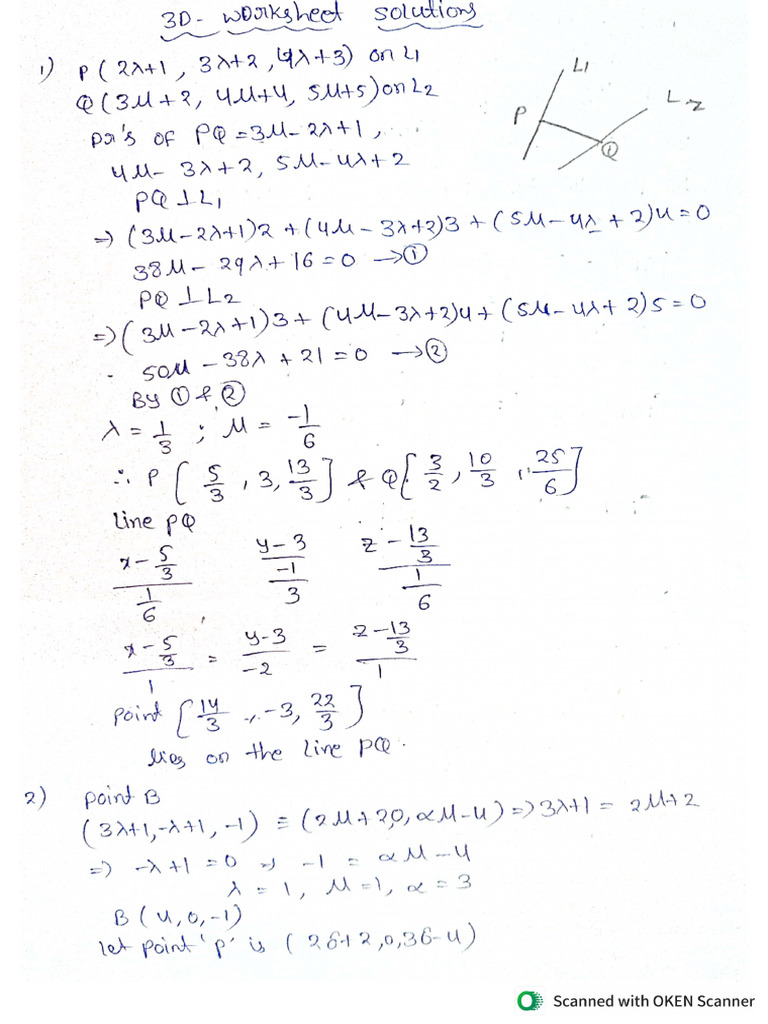 3D- worksheet solutions
1) P(2λ+1, 3λ+2, 4λ+3) on L1
Q(3μ+2, 4μ+4, 5μ+5) on L2
DR's of PQ = 3μ-2λ+1,
4μ-3λ+2, 5μ-4λ+2
PQ ⊥ L1
L1
L2
P
Q
⇒ (3μ-2λ+1)2 + (4μ-3λ+2)3 + (5μ-4λ+2)4=0
38μ-29λ+16=0 →①
PQ ⊥ L2
⇒ (3μ-2λ+1)3+(4μ-3λ+2)4+(5μ-4λ+2)5=0
50μ-38λ+21=0 →②
By ① & ②
λ = 1/3 ; μ = -1/6
∴ P[5/3, 3, 13/3] & Q[3/2, 10/3, 25/6]
line PQ
(x-5/3)/(1/6) (y-3)/(-1/3) (z-13/3)/(1/6)
(x-5/3)/1 = (y-3)/-2 = (z-13/3)/1
point [14/3, -3, 22/3]
lies on the line PQ.
2) point B
(3λ+1,-λ+1,-1) ≡ (2μ+2,0,αμ-4) ⇒ 3λ+1 = 2μ+2
⇒ -λ+1=0 ⇒ -1 = αμ-4
λ = 1, μ=1, α = 3
B(4,0,-1)
let point 'p' is (2δ+2,0,3δ-4)
Scanned with OKEN Scanner